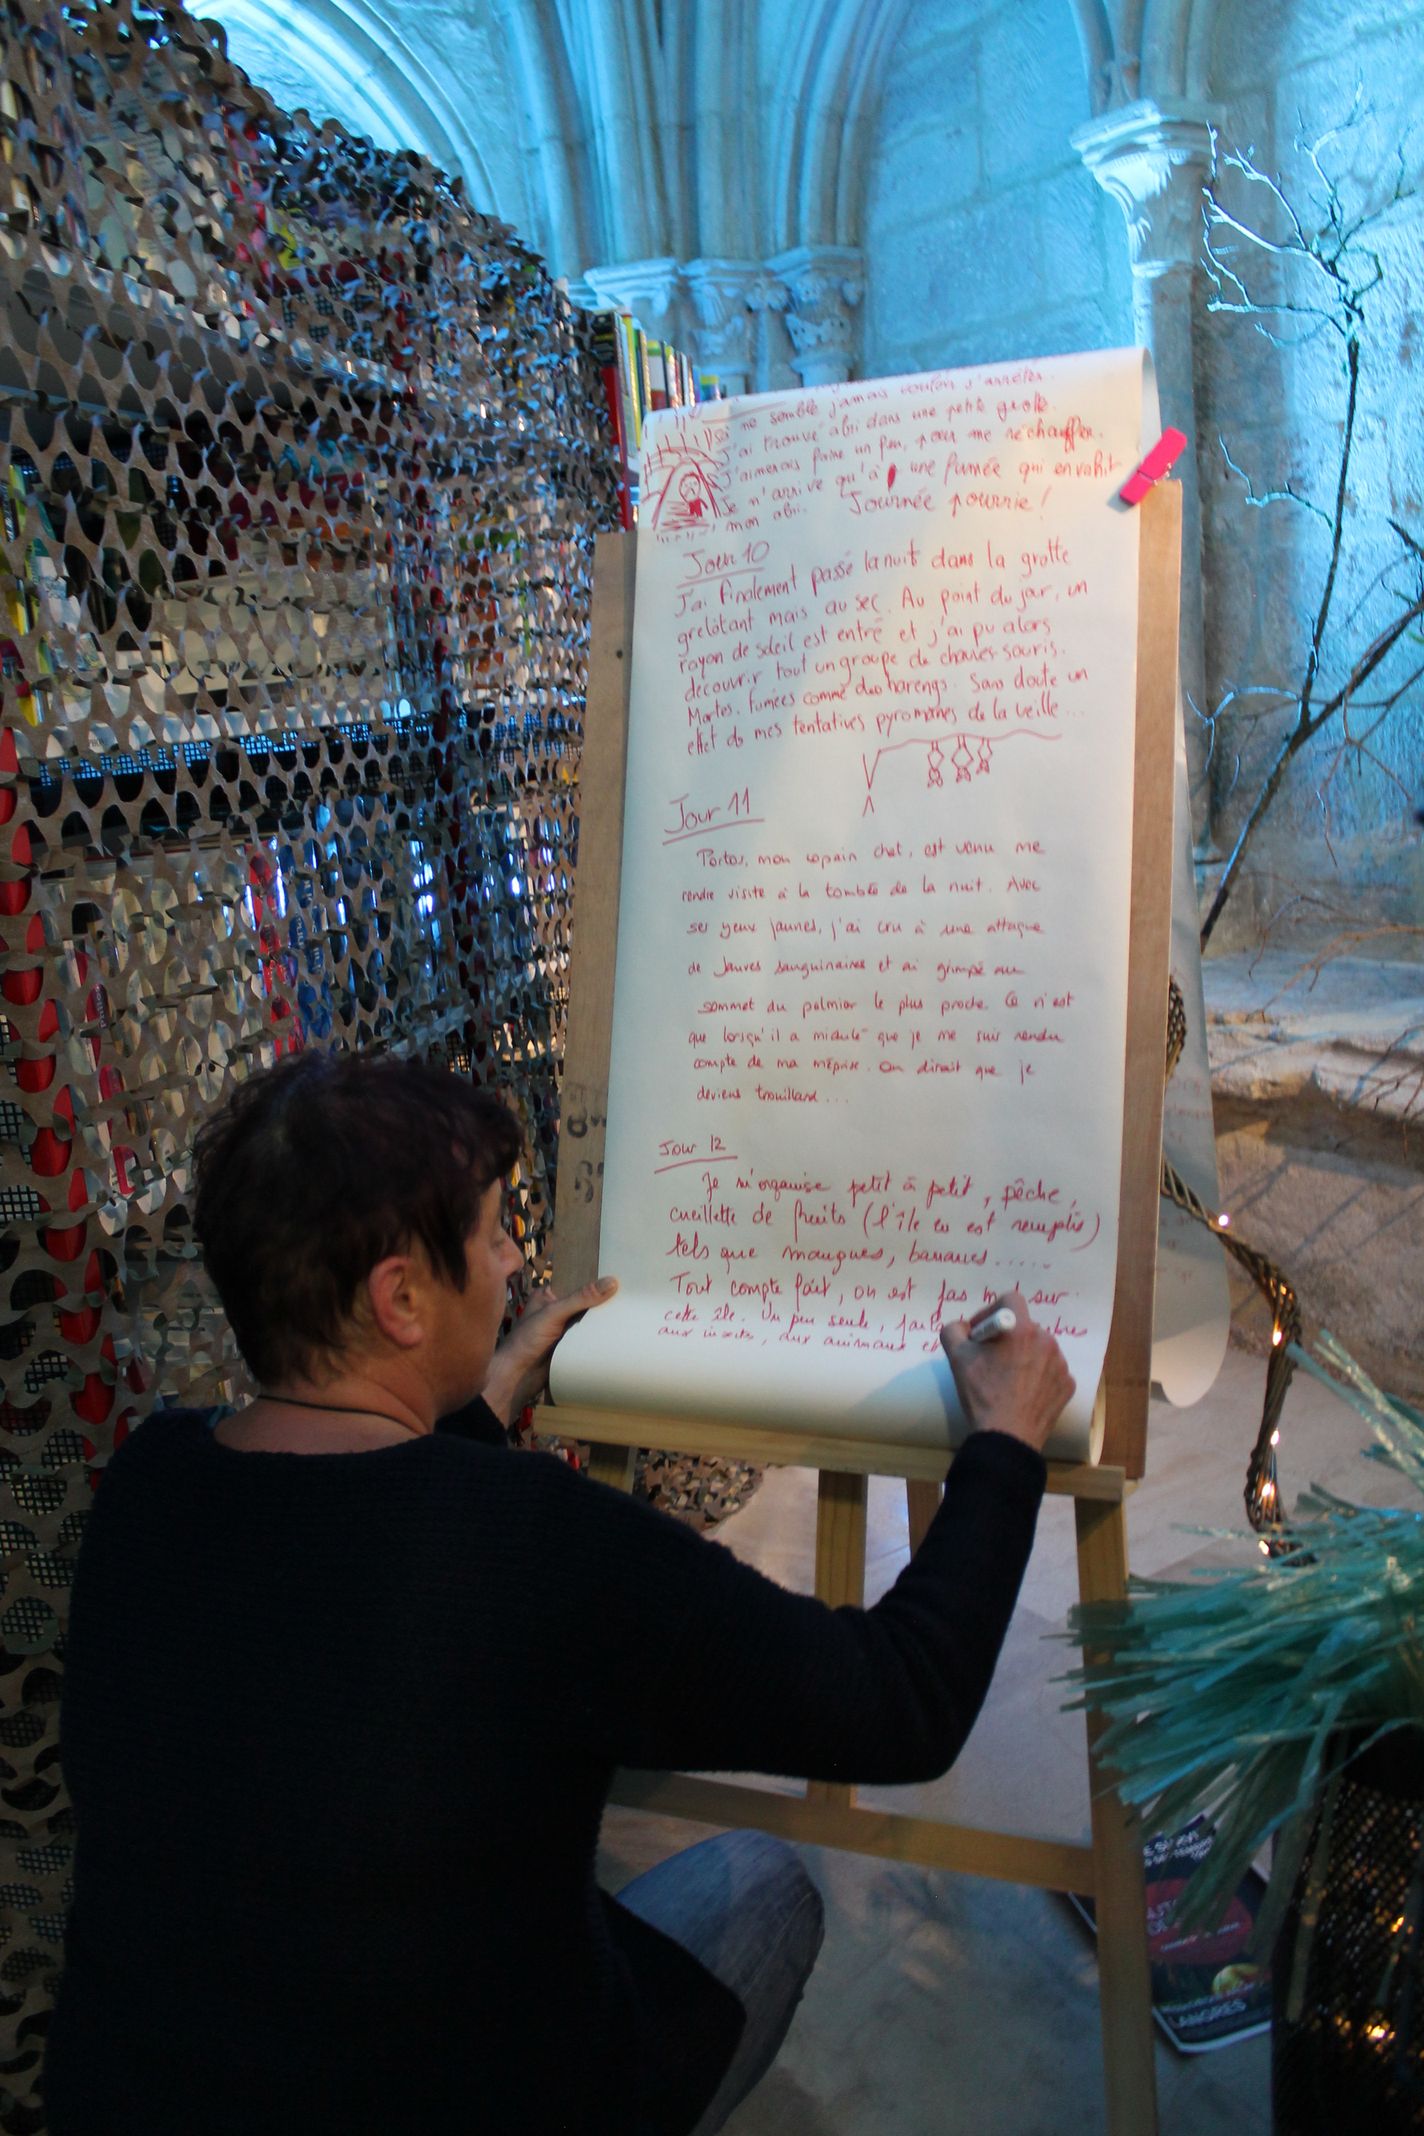 si ne semble jamais vouloir s'arrêter.
J'ai trouvé abri dans une petite grotte.
J'aimerais faire un feu, pour me réchauffer.
Je n'arrive qu'à une fumée qui envahit
mon abri. Journée pourrie !
Jour 10
J'ai finalement passé la nuit dans la grotte
grelotant mais au sec. Au point du jour, un
rayon de soleil est entré et j'ai pu alors
découvrir tout un groupe de chauves souris.
Mortes. Fumées comme des harengs. Sans doute un
effet de mes tentatives pyromanes de la veille...
Jour 11
Portos, mon copain chat, est venu me
rendre visite à la tombée de la nuit. Avec
ses yeux jaunes, j'ai cru à une attaque
de fauves sanguinaires et ai grimpé au
sommet du palmier le plus proche. Ce n'est
que lorsqu'il a miaulé que je me suis rendu
compte de ma méprise. On dirait que je
deviens trouillard...
Jour 12
Je m'organise petit à petit, pêche,
cueillette de fruits (l'île en est remplie)
tels que mangues, bananes.....
Tout compte fait, on est pas mal sur
cette île. Un peu seule,
aux insectes, aux animaux et
LANGRES